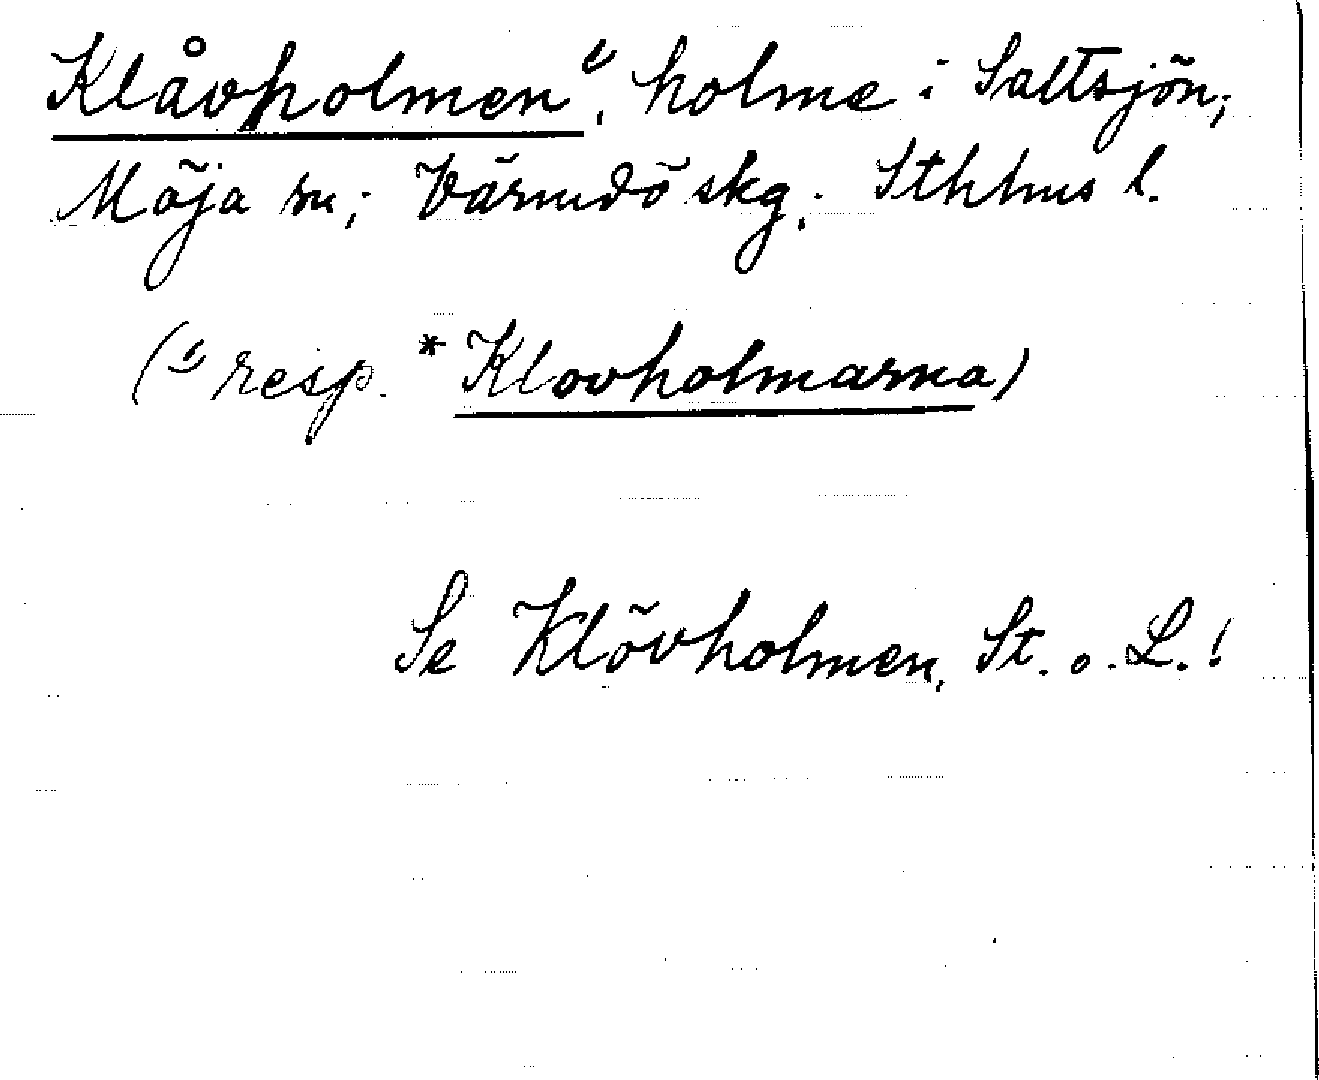 Klåvholmen", holme i Saltsjön;
Möja sn; Värmdö skg; Sthlms l.
(" resp. *Klovholmarna)
Se Klövholmen, St. o. L.!